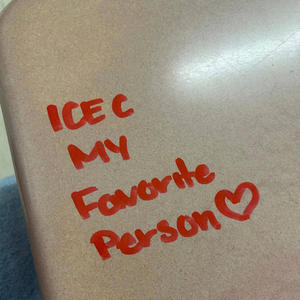 ICE C
MY
Favorite
Person♡